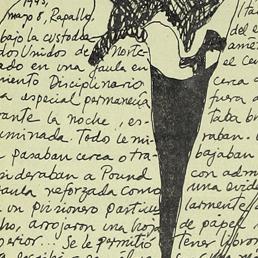 1945,
mayo 8, Rapallo,
bajo la custodia
dos Unidos de Norte-
ado en una jaula en
miento Disciplinario
a especial permanecía
rante la noche, en
minada. Todo le mi-
pasaban cerca otra-
sideraban a Pound
aula reforzada como
un prisionero particu-
ho, arrojaron una
perior... Se le permitió
del e
amé
el Ce
cerca
fuera a
taba
raban.
bajaban
con adm
una evide
larment
de papel
tener libro